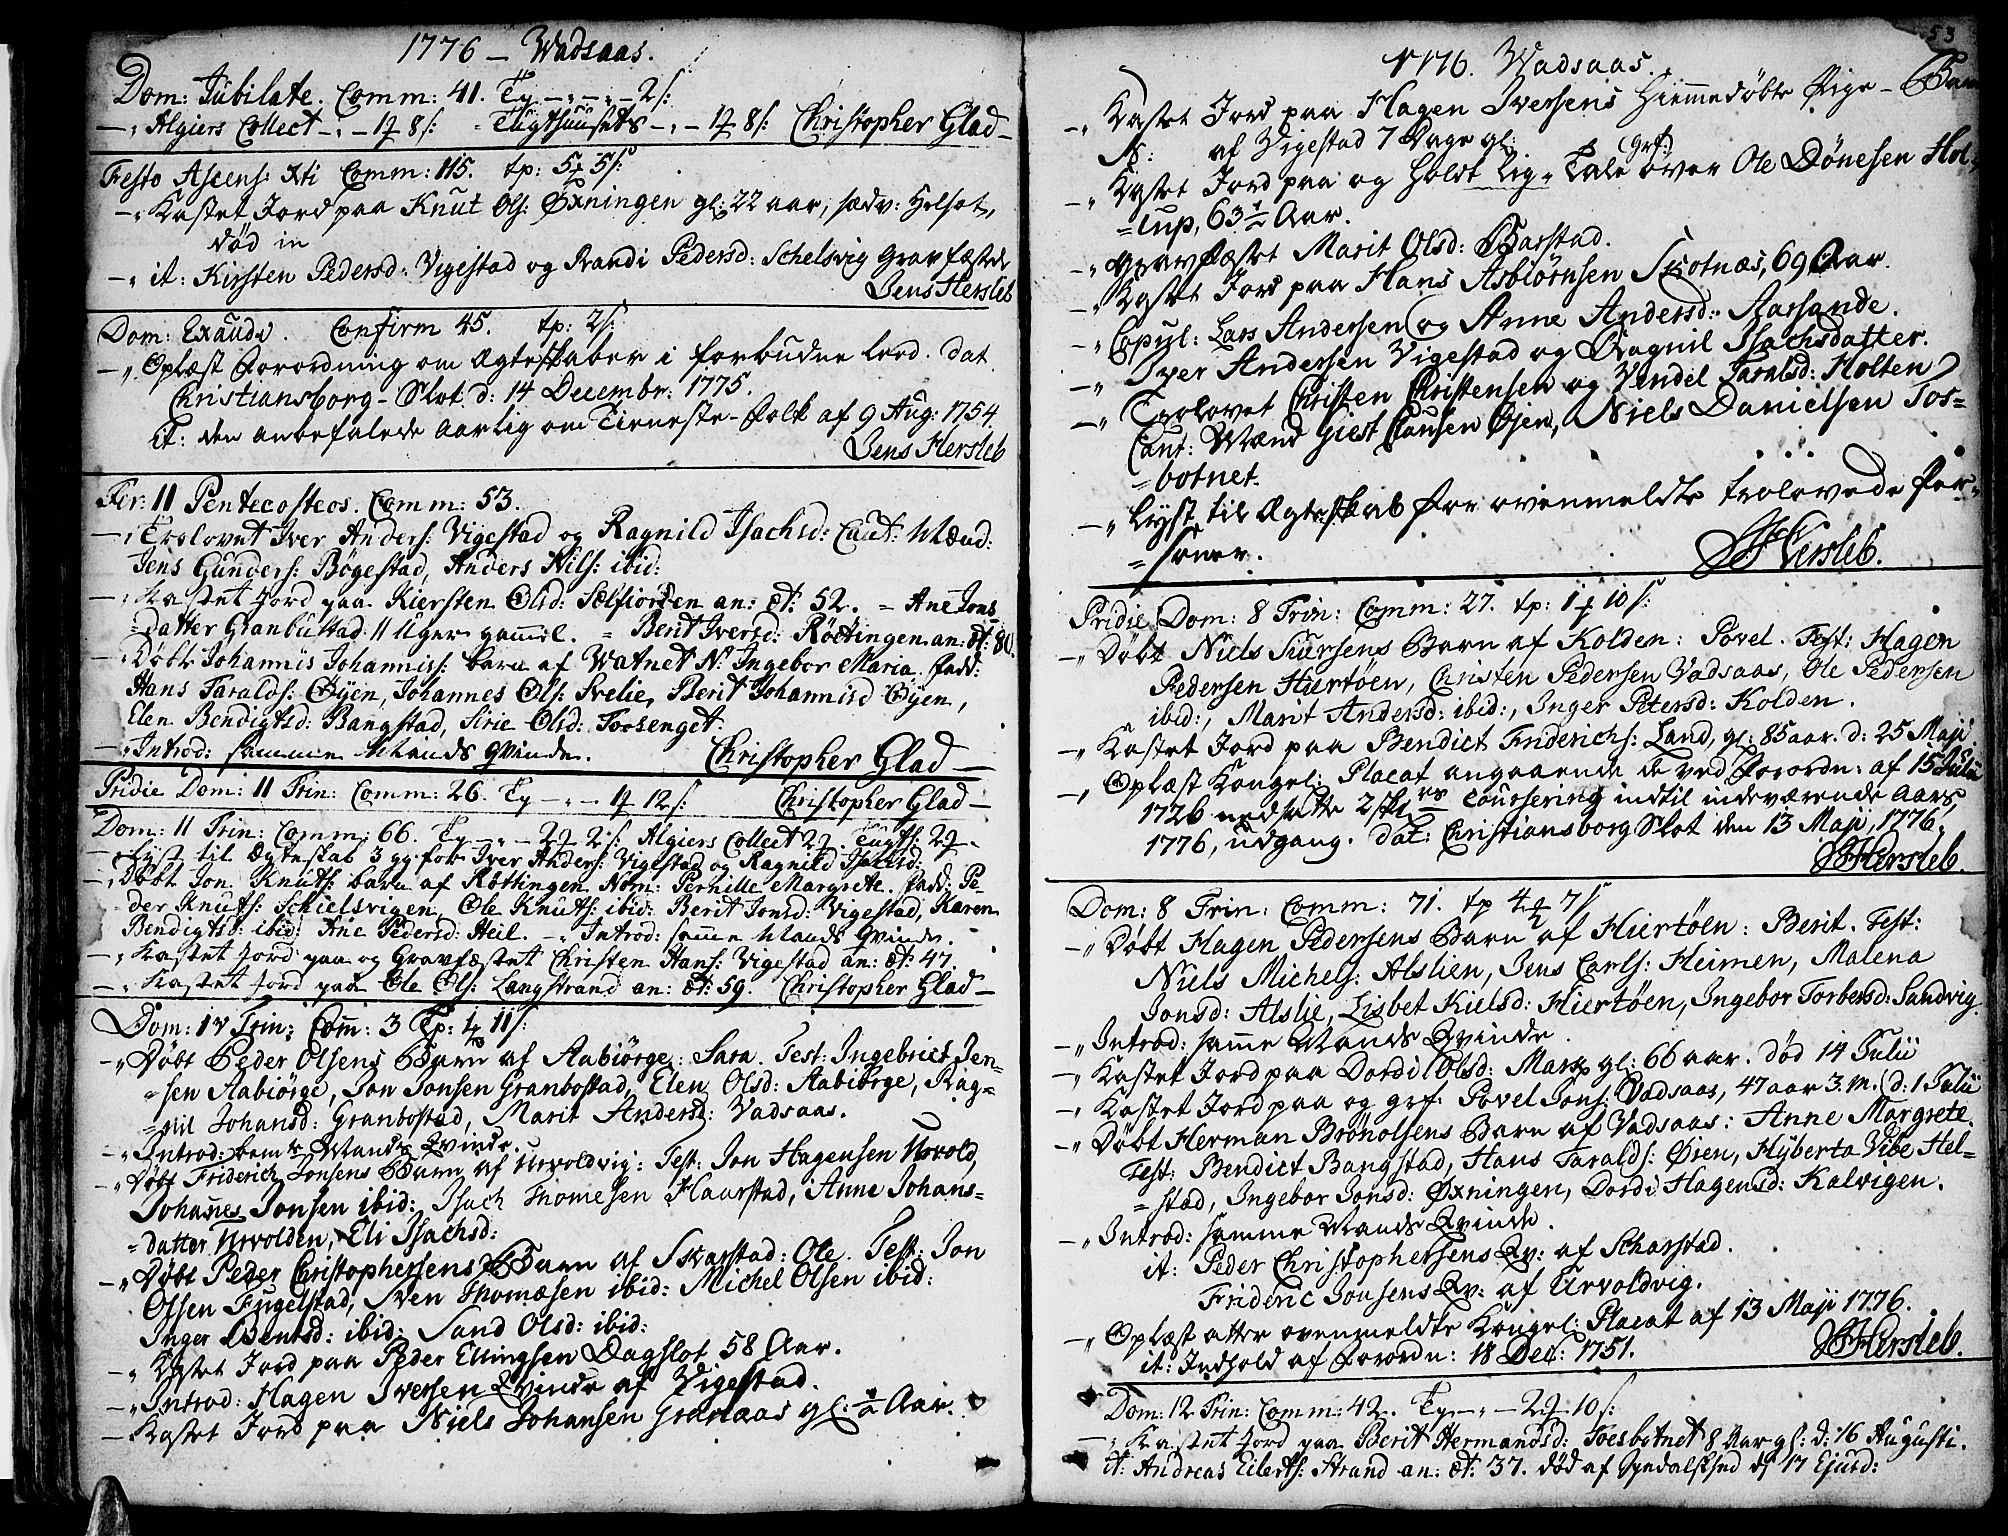 1776 - Wadsaas.
Dom: Jubilate. Comm: 41. Tp - " - " - 2 s:
- " Algiers Collect - " - 1 8 s: Tugthusets - " - 1 8 s: Christopher Glad -
Festo Ascens: Xti Comm: 115. tp: 5 5 s:
- " Kastet Jord paa Knut Ols: Øxningen gl: 22 aar, sædv: Helsot,
død in
- " it: Kirsten Pedersd: Vigestad og Randi Pedersd: Schelsvig Gravfæstede
Jens Hersleb
Dom: Exaudi. Confirm 45. tp: 2 s:
- " Oplæst Forordning om Ægteskaber i forbudne Leed. dat
Christiansborg-Slot d: 14 Decembr: 1775.
it: den anbefalede aarlig om Tieneste-Folk af 9 Aug: 1754.
Jens Hersleb
Fer: II Pentecosteos. Comm: 53.
- " Trolovet Iver Anders: Vigestad og Ragnild Isachsd: Caut: Mænd:
Jens Gunders: Bøgestad, Anders Nils: ibid:
- " Kastet Jord paa Kiersten Olsd: Selfiorden an: æt: 52. = Ane Jons
=datter Granbustad 11 Uger gammel. = Berit Iversd: Röttingen an: æt: 80.
- " Döbt Johannis Johannis: barn af Watnet N: Ingebor Maria. Fadd:
Hans Taralds: Öyen, Johannes Ols: Srelie, Berit Johannisd Öyen,
Elen Bendigtsd: Bangstad, Sirie Olsd: Forsenget
- " Introd: samme Mands Qvinde. Christopher Glad -
Pridie Dom: II Trin: Comm: 26. Tp - " - 1 12 s: Christopher Glad -
Dom: II Trin: Comm: 66. Tp - " - 2 2 s: Algiers Collect 2. Tugth: 2.
- " Lyst til Ægteskab 3 gg: for Iver Anders: Vigestad og Ragnild Isachsd:
- " Döbt Jon Knuts: barn af Röttingen Nom: Pernille Margrete. Fadd: Pe-
der Knuts: Schielsvigen, Ole Knuts: ibid: Berit Jonsd: Vigestad, Karen
Bendigts: ibid: Ane Pedersd: Heil. - " Introd: samme Mands Qvinde.
- " Kastet Jord paa og Gravfæstet Christen Hans: Vigestad an: æt: 47.
- " Kastet Jord paa Ole Ols: Langstrand an: æt: 59. Christopher Glad -
Dom: IV Trin: Comm: 3 Tp: 1 11 s:
- " Döbt Peder Olsens Barn af Aabiörge: Sara. Test: Ingebrict Jen-
=sen Aabiörge, Jon Jonsen Granbostad, Elen Olsd: Aabiörge, Rag-
=nil Johansd: Granbostad, Marit Andersd: Vadsaas.
- " Introd: Mands Qvinde
- " Döbt Friderich Jonsens Barn af Urvoldvig: Test: Jon Hagensen Urvold,
Johanes Jonsen ibid: Isach Thomesen Haarstad, Anne Johans-
=datter Urvolden, Eli Isachsd:
- " Döbt Peder Christophersens Barn af Skarstad: Ole. Test: Jon
Olsen Fugelstad, Sven Thomæsen ibid: Michel Olsen ibid:
Inger Bentsd: ibid: Sand Olsd: ibid:
- " Kastet Jord paa Peder Ellingsen Dagslot 58 Aar.
- " Introd: Hagen Iversen Qvinde af Vigestad.
- Kastet Jord paa Niels Johansen Granaas gl: ½ Aar.
53
1776. Vadsaas.
- " Kastet Jord paa Hagen Iversens Hiemmedøbte Pige-Barn
af Vigestad 7 Dage gl:
- " Kastet Jord paa og holdt Lig-Tale over Ole Dönesen Hol-
=lup, 63½ Aar.
- " Gravfæstet Marit Olsd: Barstad.
- " Kastet Jord paa Hans Asbiörnsen Skotnæs, 69 Aar.
- " Copul: Lars Andersen og Anne Andersd: Aarsande.
- " Iver Andersen Vigestad og Ragnil Isachsdatter.
- " Trolovet Christen Christensen og Vendel Taralsd: Holten
Caut: Mænd Giert Clausen Øjen, Niels Danielsen Tos-
=botnet.
- " Lyst til Ægteskab for ovenmeldte trolovede Per-
=soner. JHersleb.
Pridie Dom: 8 Trin: Comm: 27. tp: 1 10 s:
- " Döbt Niels Siursens Barn af Kolden: Povel. Test: Hagen
Pedersen Hiertöen, Christen Pedersen Vadsaas, Ole Pedersen
ibid:, Marit Andersd: ibid:, Inger Petersd: Kolden.
- " Kastet Jord paa Bendict Friderichs: Land, gl: 85 aar. d: 25 Maji
- " Oplæst Kongel: Placat angaaende de ved Forordn: af 15 Julii
1726 nedsatte 2 skl:res Coursering indtil indeværende Aars,
1776, udgang. dat: Christiansborg Slot den 13 Maji, 1776.
JHersleb.
Dom: 8 Trin: Comm: 71. tp 4 7 s
- " Döbt Hagen Pedersens Barn af Hiertöen: Berit. Test:
Niels Michels: Alslien, Jens Carls: Heimen, Malena
Jonsd: Alslie, Lisbet Kielsd: Hiertöen, Ingebor Torbersd: Sandvig.
- " Introd: samme Mands Qvinde.
- " Kastet Jord paa Dordi Olsd: Marp gl: 66 aar. död 14 Julii
- " Kastet Jord paa og grf: Povel Jons: Vadsaas, 47 aar 3. m. d: 1 Julii
- " Döbt Herman Brönolsens Barn af Vadsaas: Anne Margrete.
Test: Bendict Bangstad, Hans Taralds: Öien, Hyberta Vibe Hel-
=stad, Ingebor Jonsd: Øxningen, Dordi Hagensd: Kalvigen.
- " Introd: samme Mands Qvinde.
it: Peder Christophersens Qv: af Scharstad.
Frideric Jonsens Qv: af Urvoldvig.
- " Oplæst atter ovenmeldte Kongel: Placat af 13 Maji 1776.
it: Indhold af Forordn: 18 Dec: 1751. JHersleb.
Dom: 12 Trin: Comm: 42. Tp - " - 2 10 s:
- " Kastet Jord paa Berit Hermandsd: Toesbotnet 8 Aar gl: d: 16 Augusti.
it: Andreas Eilerts: Strand an: æt: 37. död af d 17 Ejusd: